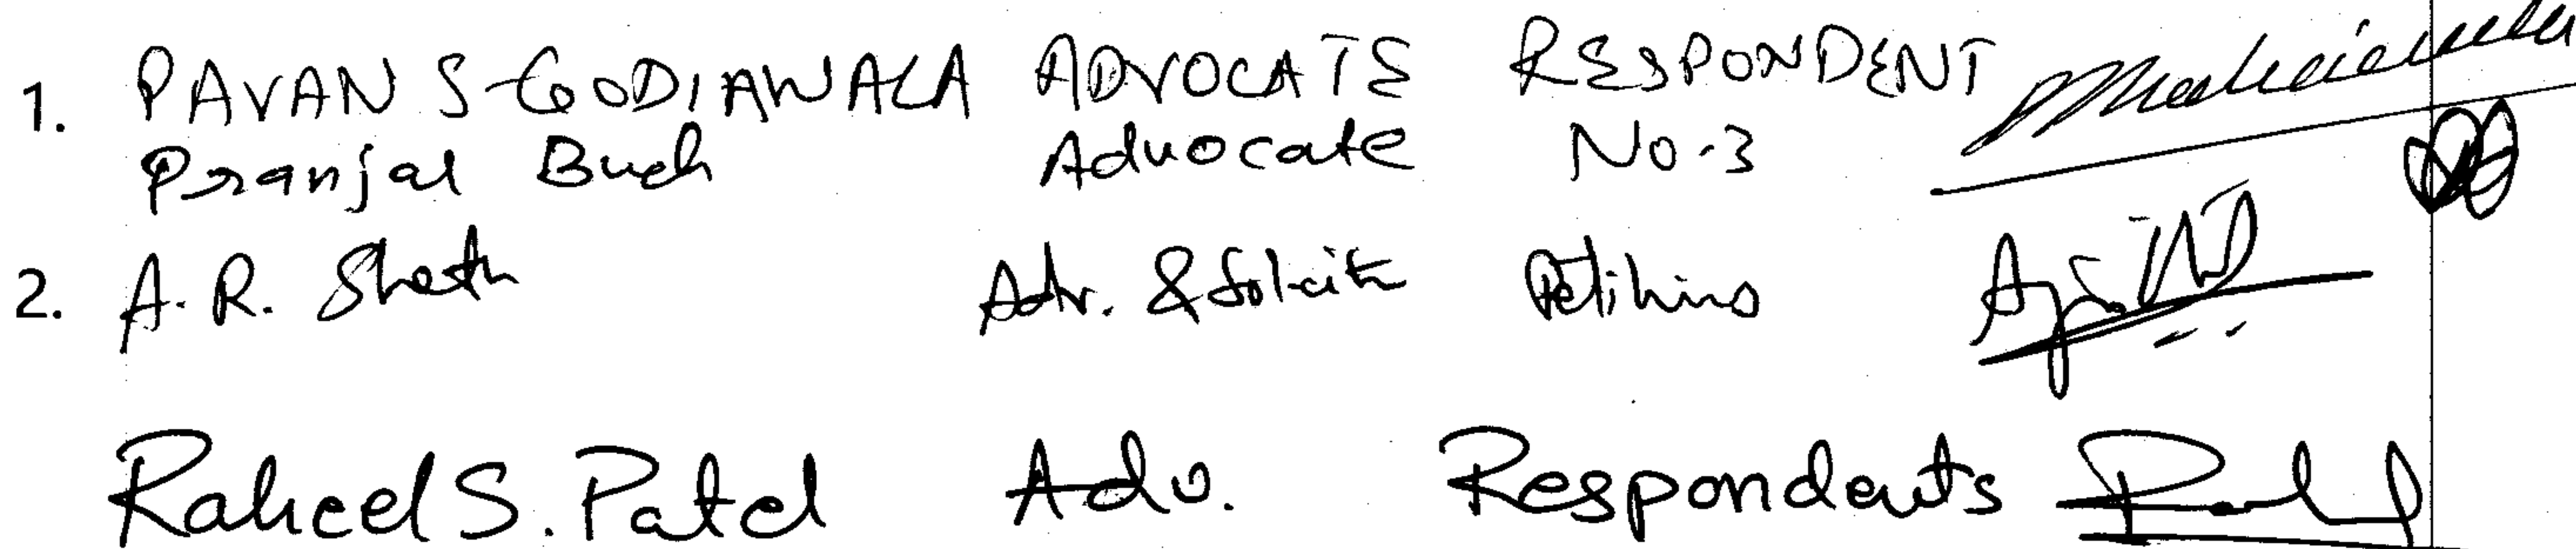 1. PAVAN S GODIAWALA ADVOCATE RESPONDENT
Pranjal Buch Advocate No.3
2. A. R. Sheth Adv. &
Raheel S. Patel Adv. Respondents